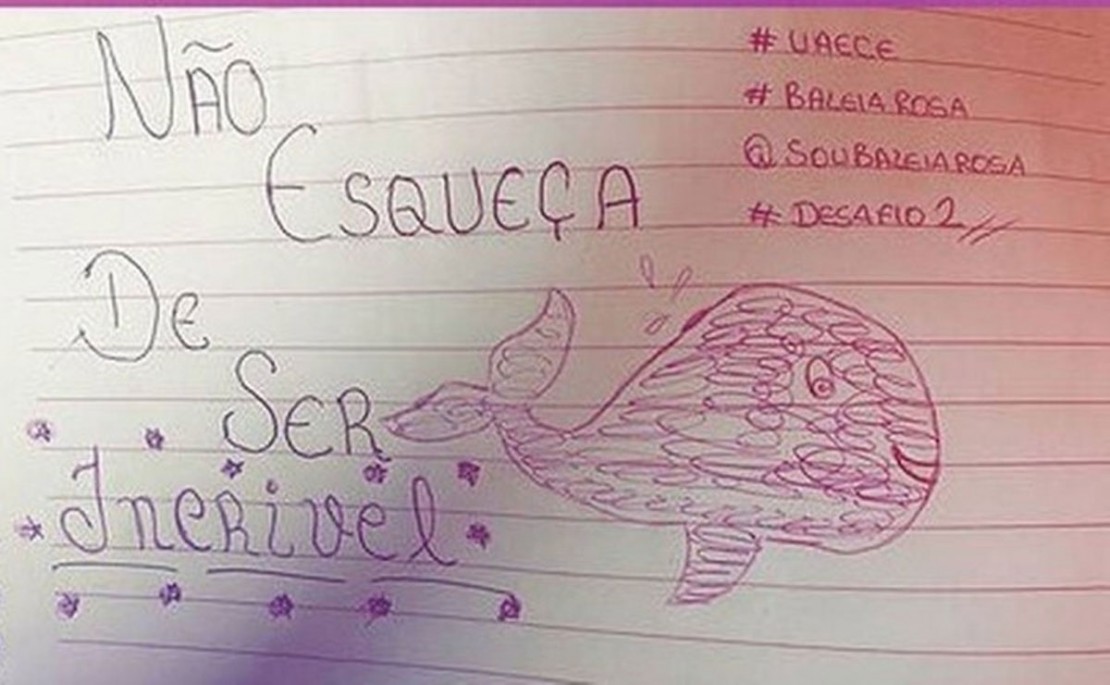 NÃO
ESQUEÇA
DE
SER
Incrivel
# UAECE
# BALEIA ROSA
@SOUBALEIAROSA
# DESAFIO 2